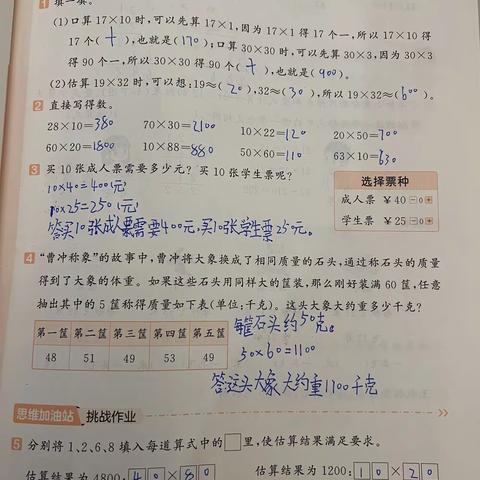 1 填一填。
(1)口算17×10时,可以先算17×1,因为17×1得17个一,所以17×10得
17个(十),也就是(170);口算30×30时,可以先算30×3,因为30×3
得90个一,所以30×30得90个(十),也就是(900)。
(2)估算19×32时,可以想:19≈(20),32≈(30),所以19×32≈(600)。
2 直接写得数。
28×10=380 70×30=2100 10×22=120 20×50=700
60×20=1800 10×88=880 50×60=110 63×10=630
3 买10张成人票需要多少元?买10张学生票呢?
10×40=400(元)
10×25=250(元)
答买10张成人票需要400元,买10张学生票25元。
选择票种
成人票 ¥40 -0+
学生票 ¥25 -0+
4 “曹冲称象”的故事中,曹冲将大象换成了相同质量的石头,通过称石头的质量
得到了大象的体重。如果这些石头用同样大的筐装,那么刚好装满60筐,任意
抽出其中的5筐称得质量如下表(单位:千克)。这头大象大约重多少千克?
第一筐 第二筐 第三筐 第四筐 第五筐
48 51 49 53 49
每筐石头约50克。
50×60=1100
答这头大象大约重1100千克
思维加油站 挑战作业
5 分别将1、2、6、8填入每道算式中的□里,使估算结果满足要求。
估算结果为4800: 40×80 估算结果为1200: 10×20